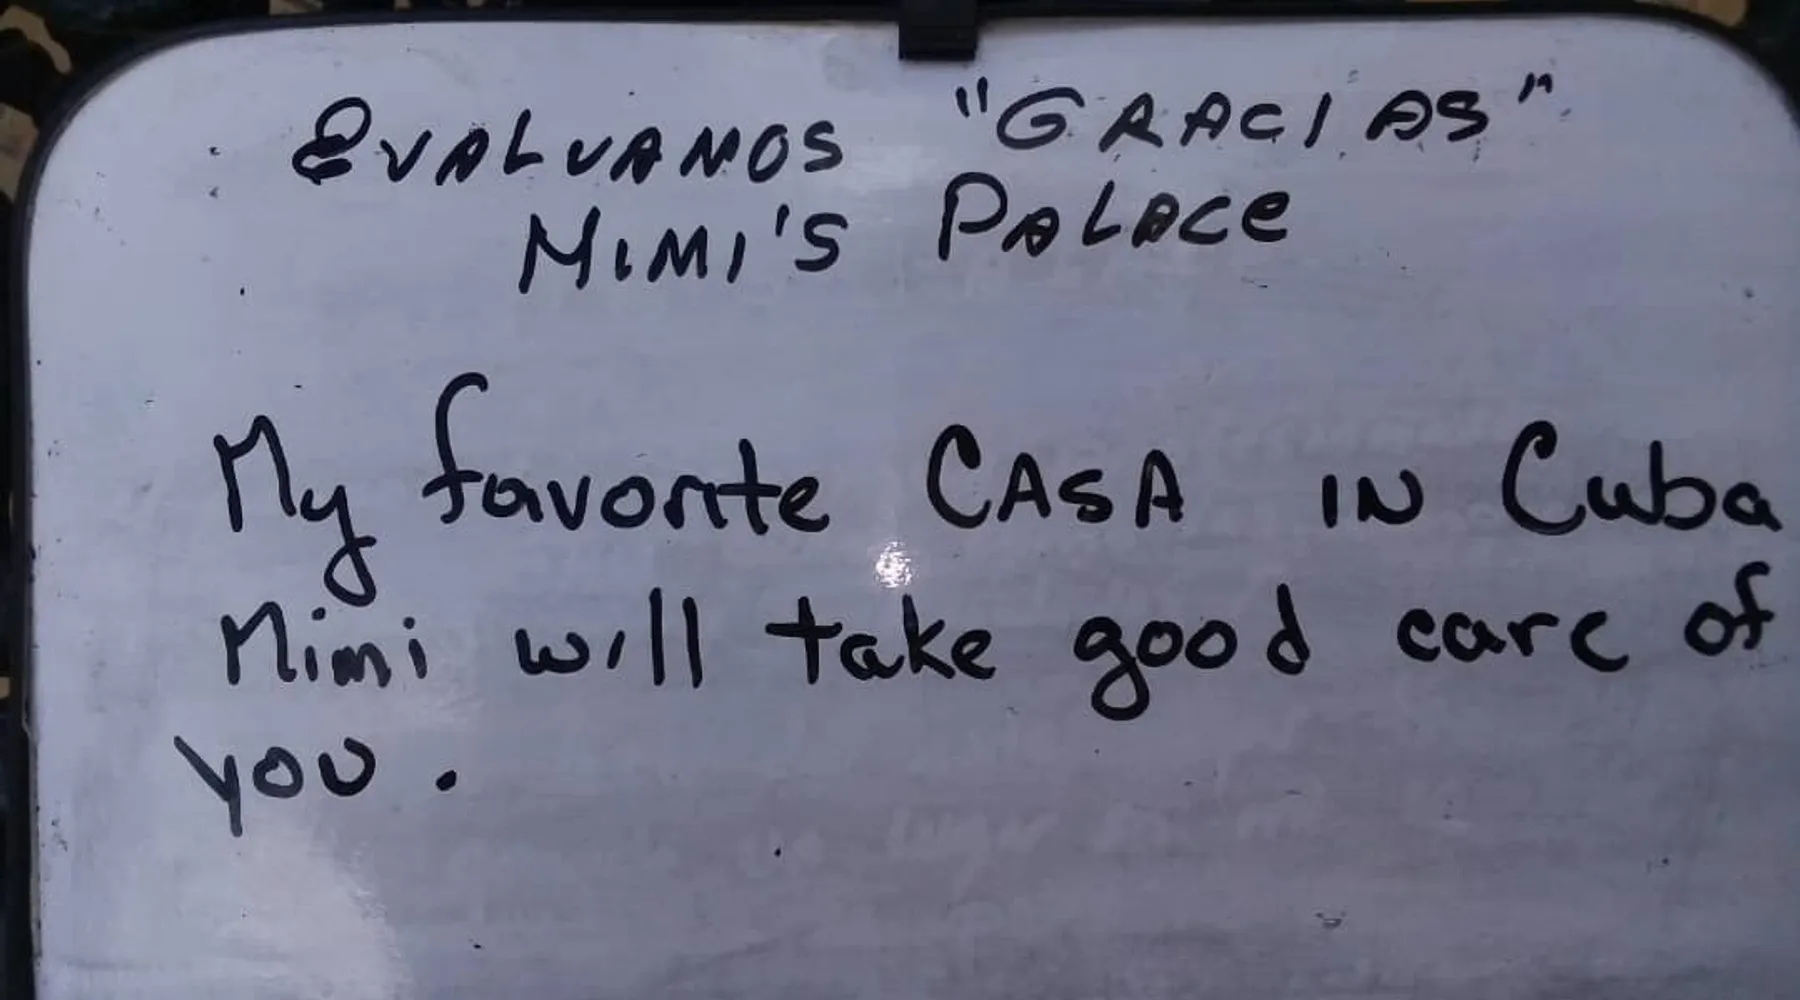 EVALUANOS "GRACIAS"
MIMI'S PALACE
My favorite CASA IN Cuba
Mimi will take good care of
you.